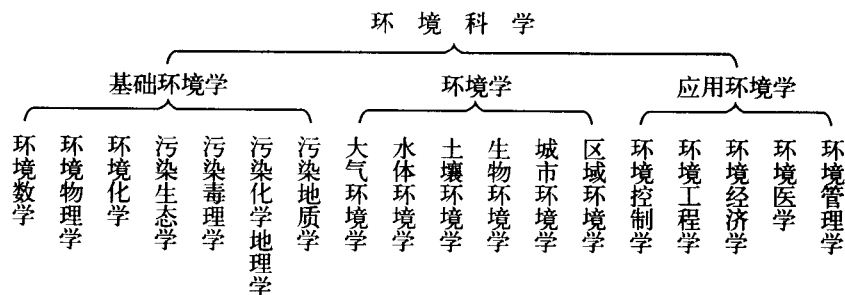 环境科学
基础环境学
环境学
应用环境学
环境数学
环境物理学
环境化学
污染生态学
污染毒理学
污染化学地理学
污染地质学
大气环境学
水体环境学
土壤环境学
生物环境学
城市环境学
区域环境学
环境控制学
环境工程学
环境经济学
环境医学
环境管理学